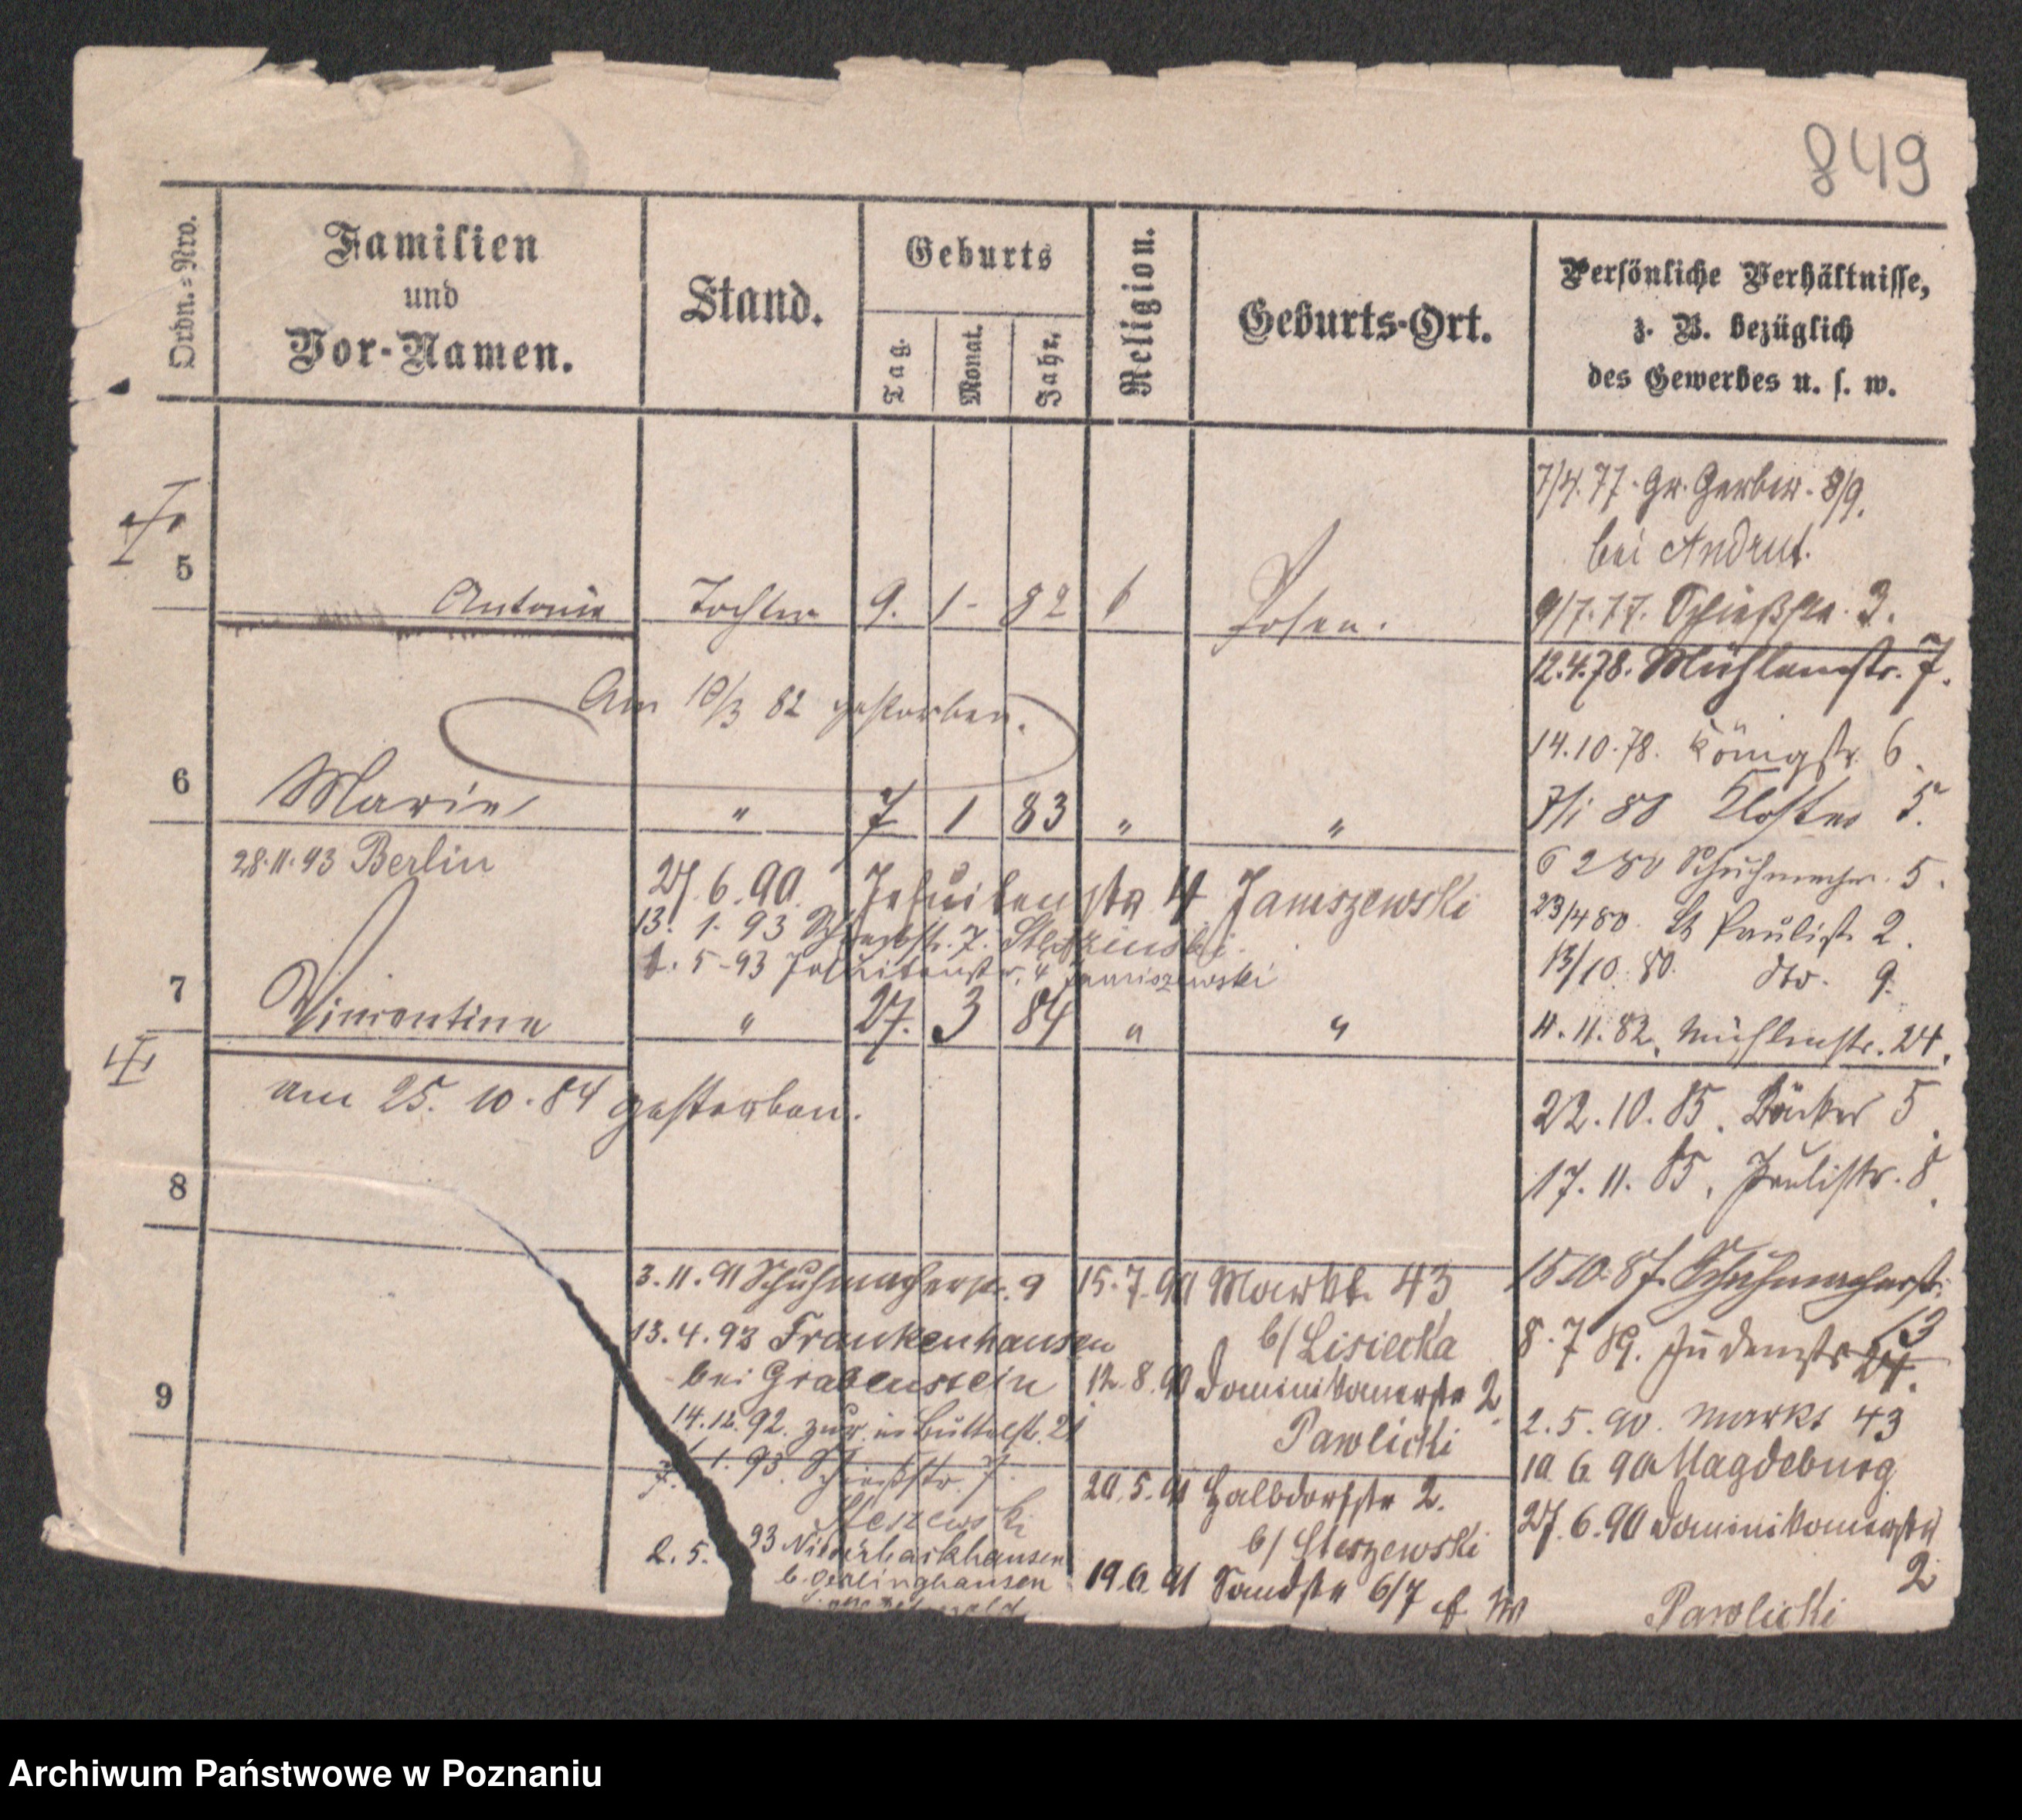 849
Ordn.-Nro.
Familien
und
Vor-Namen.
Stand.
Geburts
Tag.
Monat.
Jahr.
Religion.
Geburts-Ort.
Persönliche Verhältnisse,
z. B. bezüglich
des Gewerbes u. s. w.
5
Antonie Tochter 9. 1 - 82 Posen.
Am 10/3 82 gestorben.
6
Marie " 7 1 83 " "
28.11.93 Berlin
27.6.90. Jesuitenstr. 4 Janiszewski
13. 1. 93 Schießstr. 7.
5-93 Jesuitenstr. 4 Janiszewski
7
" 27. 3 84 " "
am 25. 10. 84 gestorben.
8
9
3.11.91 Schuhmacherstr. 9
13.4.92 Frankenhausen
bei Grabenstein
14.12.92. zur. in Büttelstr. 21
1.93. Schießstr. 7.
2.5. 93
b. Oerlinghausen
15.7.90 Markt 43
b/ Lisiecka
12.8.90 Dominikanerstr 2
Pawlicki
20.5.91 Halbdorfstr 2.
b/ Steszewski
19.6.91 Sandstr 6/7
7/4.77. Gr. Gerber. 8/9.
bei Andrut.
9/7.77. Schießstr. 3.
12.4.78. Mühlenstr. 7.
14.10.78. Königstr. 6.
Kloster 5.
6 2 80 Schuhmacher. 5.
23/4 80. St Paulistr 2.
13/10.80. dto. 9.
11.11.82. Mühlenstr. 24.
22.10.85. Bäcker 5.
17.11.85. Paulistr. 8.
15.10.87. Schuhmacherstr.
13
8.7.89. Judenstr 27.
2.5.90. Markt 43
10.6.90 Magdeburg
27.6.90 Dominikanerstr
2
Pawlicki
Archiwum Państwowe w Poznaniu